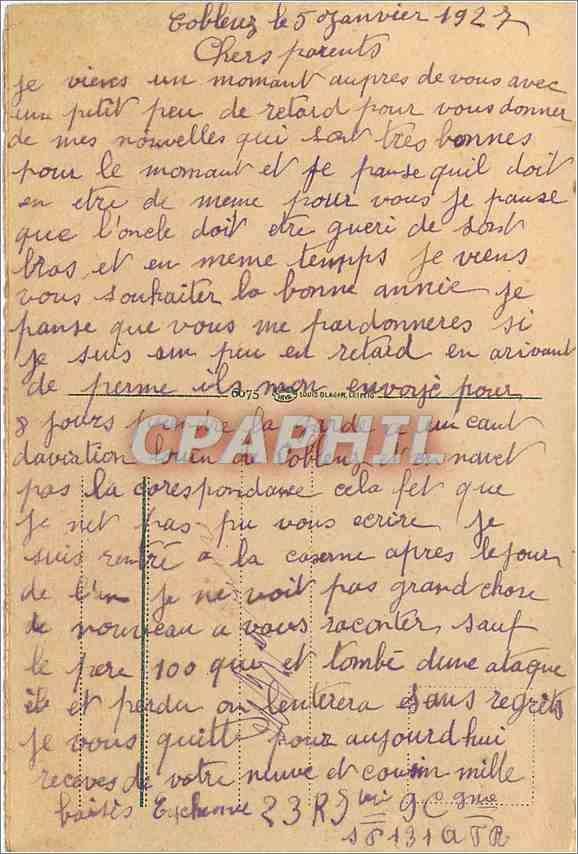 Coblenz le 5 Janvier 1927
Chers parents
je viens un momant aupres de vous avec
un petit peu de retard pour vous donner
de mes nouvelles qui sont tres bonnes
pour le momant et je panse quil doit
en etre de meme pour vous je panse
que l'oncle doit etre gueri de sont
bras, et en meme tempps je viens
vous souhaiter la bonne annie je
panse que vous me pardonneres si
je suis un peu en retard en arivant
de perme ils mon envoyé pour
6075 LOUIS GLASER, LEIPZIG
8 jours prendre la garde a un cant
daviation loin de Coblenz et on navet
CPAPHIL
pas la corespondance cela fet que
je net pas pu vous ecrire, je
suis rentré a la caserne apres le jour
de l'an je ne voit pas grand chose
de nouveau a vous raconter, sauf
le pere 100 qui et tombé dune ataque
et perdu on lenterera sans regrets
je vous quitte pour aujourd hui
receves de votre neuve et cousin mille
baisés 23 R 9 C
SP 131 A